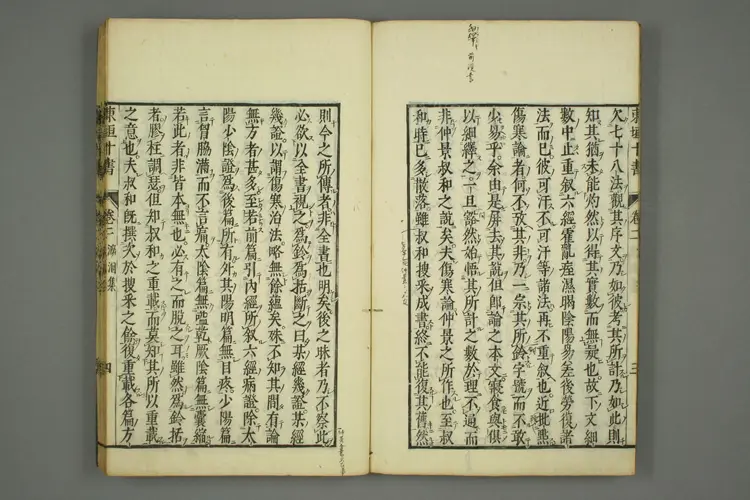 東垣十書
卷二
三
欠七十八法觀其序文乃如彼考其所計乃如此則
知其猶未能灼然以得其實數而無疑也故下文細
數中止重叙六經霍亂痓濕暍陰陽易差後勞復諸
法而已彼可汗不可汗等諸法再不重叙也近批點
傷寒論者何不攷其非乃一宗其所鈐字號而不敢
少易乎余由是屏去其說但卽論之本文寢食與俱
以紬繹之一旦豁然始悟其所計之數於理不通而
非仲景叔和之說矣夫傷寒論仲景之所作也至叔
和時已多散落雖叔和搜采成書終不能復其舊然
則今之所傳者非全書也明矣後之昧者乃不察此
必欲以全書視之爲鈐爲括斷之曰某經幾證某經
幾證以謂傷寒治法略無餘蘊矣殊不知其間有論
無方者甚多至若前篇引內經所叙六經病證除太
陽少陰證爲後篇所有外其陽明篇無目疼少陽篇
言胷脇滿而不言痛太陰篇無嗌乾厥陰篇無囊縮
若此者非皆本無也必有之而脫之耳雖然爲鈐括
者膠柱調瑟但知叔和之重載而莫知其所以重載
之意也夫叔和旣撰夫於搜采之餘復重載各篇方
東垣十書
卷二 溯洄集
四